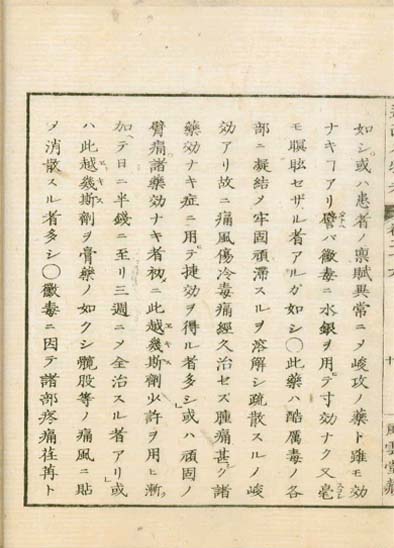 如シ或ハ患者ノ禀賦異常ニメ峻攻ノ藥ト雖モ効
ナキヿアリ譬バ黴毒ニ水銀ヲ用テ寸効ナク又毫
モ瞑眩セザル者アルガ如シ〇此藥ハ酷厲毒ノ各
部ニ凝結メ牢固頑滞スルヲ溶解シ疏散スルノ峻
効アリ故ニ痛風傷冷毒痛經久治セズ腫痛甚ク諸
藥効ナキ症ニ用テ捷効ヲ得ル者多シ或ハ頑固ノ
臂痛諸藥効ナキ者初ニ此越幾斯劑少許ヲ用ヒ漸
加テ日ニ半錢ニ至リ三週ニメ全治スル者アリ或
ハ此越幾斯劑ヲ膏藥ノ如クシ髖股等ノ痛風ニ貼
メ消散スル者多シ〇黴毒ニ因テ諸部疼痛荏苒ト